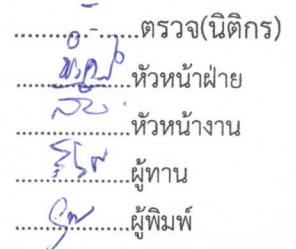 ....................ตรวจ(นิติกร)
....................หัวหน้าฝ่าย
....................หัวหน้างาน
....................ผู้ทาน
....................ผู้พิมพ์